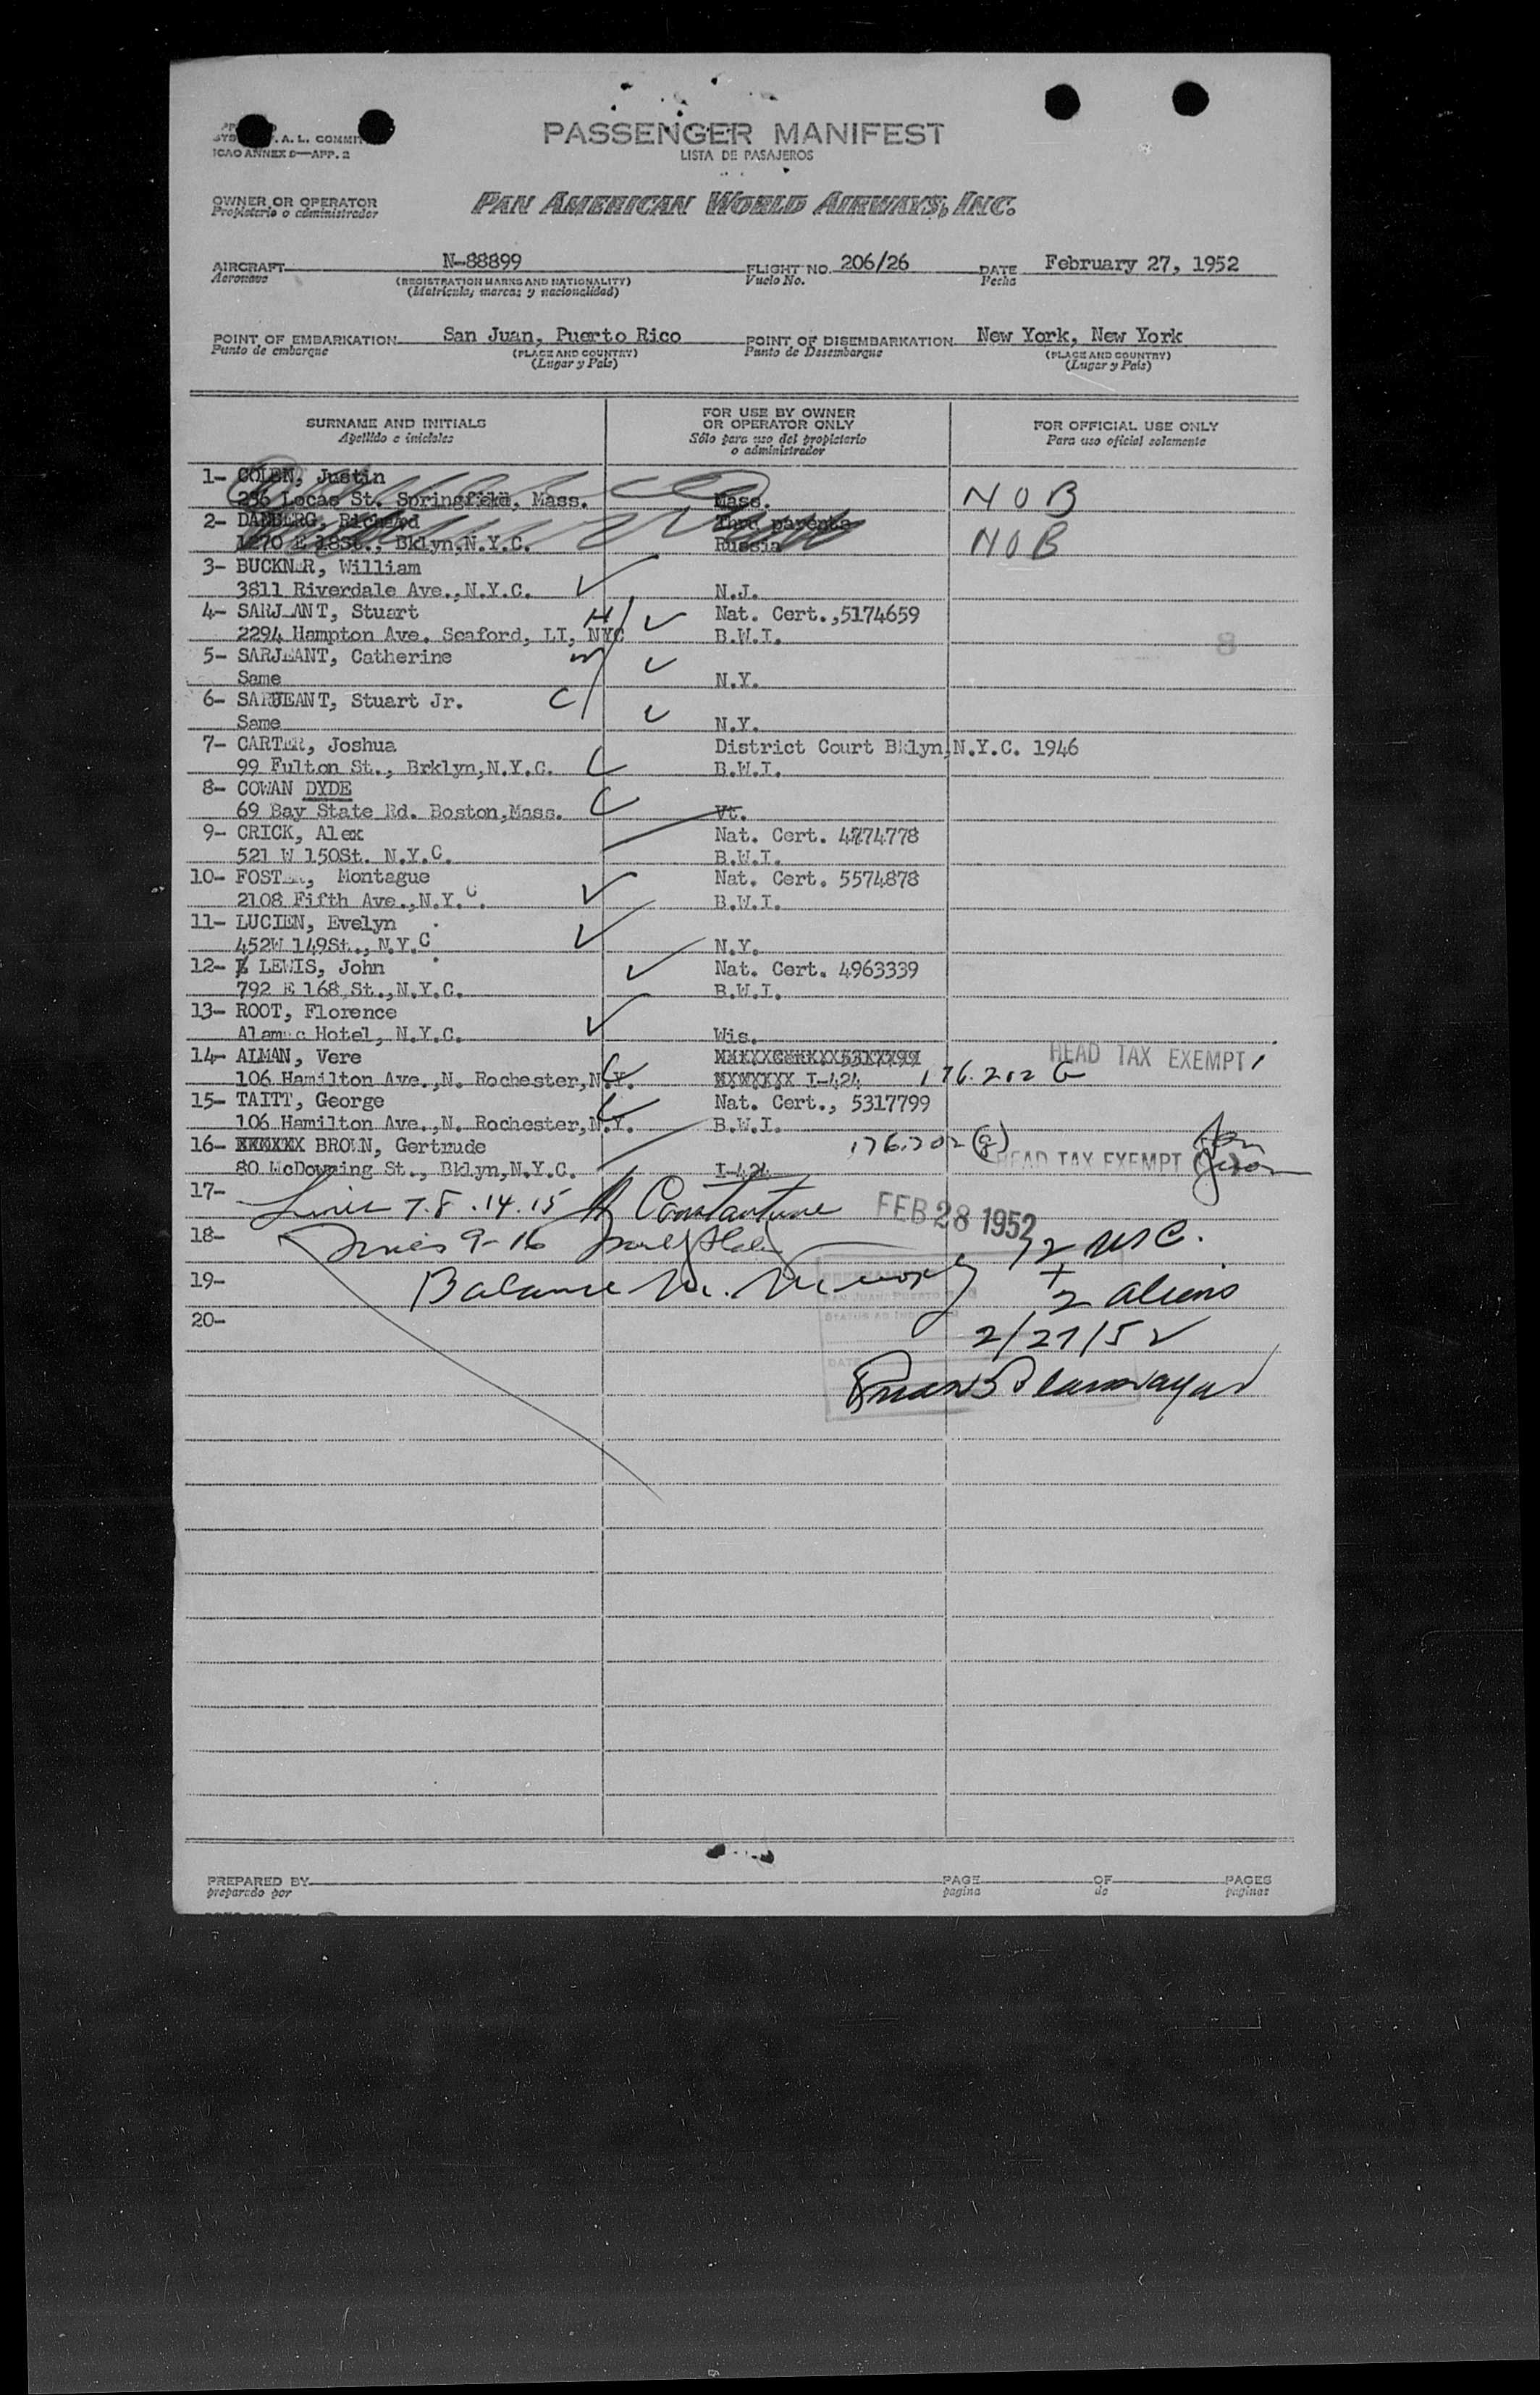 PASSENGER MANIFEST
LISTA DE PASAJEROS
A. L.
ICAO ANNEX 9—APP. 2
OWNER OR OPERATOR
Propietario o administrador
PAN AMERICAN WORLD AIRWAYS, INC.
AIRCRAFT N-88899 FLIGHT NO. 206/26 DATE February 27, 1952
Aeronave (REGISTRATION MARKS AND NATIONALITY) Vuelo No. Fecha
(Matricula, marcas y nacionalidad)
POINT OF EMBARKATION San Juan, Puerto Rico POINT OF DISEMBARKATION New York, New York
Punto de embarque (PLACE AND COUNTRY) Punto de Desembarque (PLACE AND COUNTRY)
(Lugar y País) (Lugar y País)
SURNAME AND INITIALS FOR USE BY OWNER OR OPERATOR ONLY FOR OFFICIAL USE ONLY
Apellido e iniciales Sólo para uso del propietario o administrador Para uso oficial solamente
1- COLEN, Justin
236 Locas St. Springfield, Mass. Mass. NOB
2- DANBERG, Richard Thru parents
1270 E 18St., Bklyn,N.Y.C. Russia NOB
3- BUCKNER, William
3811 Riverdale Ave.,N.Y.C. N.J.
4- SARJEANT, Stuart H Nat. Cert.,5174659
2294 Hampton Ave. Seaford, LI, NYC B.W.I.
8
5- SARJEANT, Catherine W
Same N.Y.
6- SARJEANT, Stuart Jr. C
Same N.Y.
7- CARTER, Joshua District Court Bklyn,N.Y.C. 1946
99 Fulton St., Brklyn,N.Y.C. B.W.I.
8- COWAN DYDE
69 Bay State Rd. Boston,Mass. Vt.
9- CRICK, Alex Nat. Cert. 4774778
521 W 150St. N.Y.C. B.W.I.
10- FOSTER, Montague Nat. Cert. 5574878
2108 Fifth Ave.,N.Y.C. B.W.I.
11- LUCIEN, Evelyn
452W 149St., N.Y.C N.Y.
12- LEWIS, John Nat. Cert. 4963339
792 E 168 St.,N.Y.C. B.W.I.
13- ROOT, Florence
Alamac Hotel, N.Y.C. Wis.
14- ALMAN, Vere HEAD TAX EXEMPT
106 Hamilton Ave.,N. Rochester,N.Y. I-424 176.202 G
15- TAITT, George Nat. Cert., 5317799
106 Hamilton Ave.,N. Rochester,N.Y. B.W.I.
16- BROWN, Gertrude 176.202(g)
80 McDowning St., Bklyn,N.Y.C. I-424 HEAD TAX EXEMPT
17- Lines 7.8.14.15 Constantine FEB 28 1952
18- Lines 9-16 12 USC.
19- Balance +
2 aliens
20- 2/27/52
SAN JUAN, PUERTO RICO
STATUS AS
DATE
PREPARED BY PAGE OF PAGES
preparado por pagina de paginas